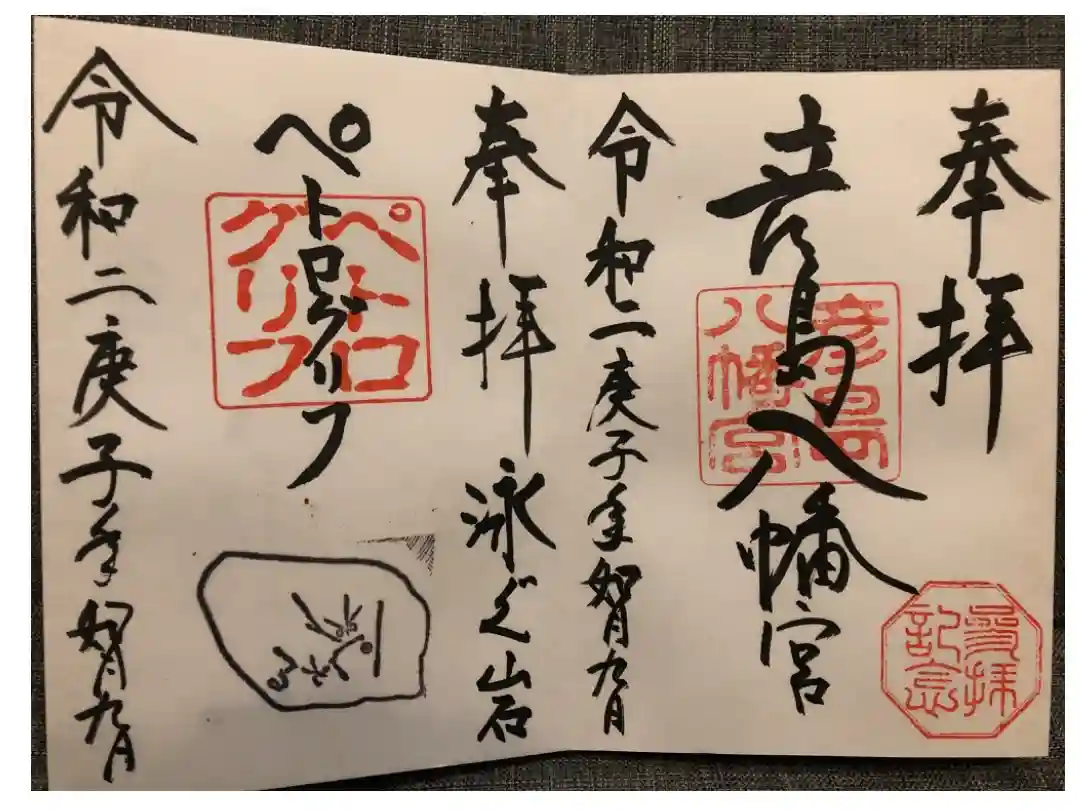 奉拝
彦島八幡宮
彦島
八幡宮
參拝
記念
令和二庚子年如月九日
奉拝 泳ぐ山岩
ペトログリフ
ペトロ
グリフ
令和二庚子年如月九日